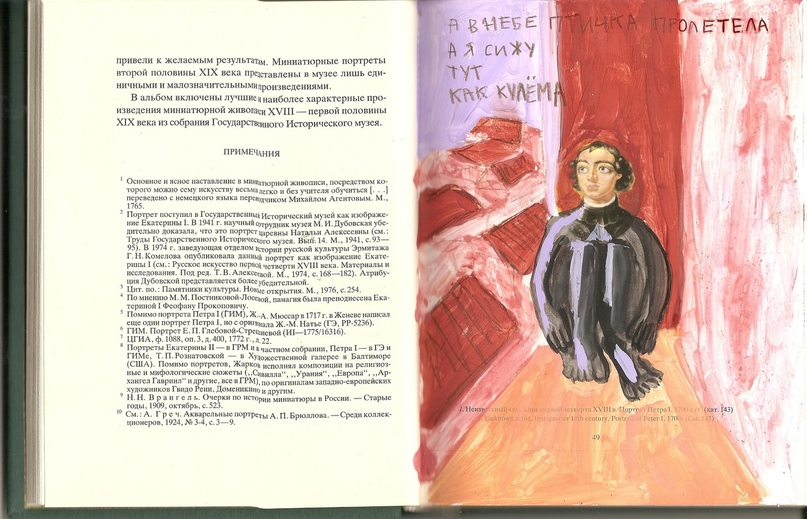 привели к желаемым результатам. Миниатюрные портреты
второй половины XIX века представлены в музее лишь еди-
ничными и малозначительными произведениями.
В альбом включены лучшие и наиболее характерные про-
изведения миниатюрной живописи XVIII — первой половины
XIX века из собрания Государственного Исторического музея.
ПРИМЕЧАНИЯ
1 Основное и ясное наставление в миниатюрной живописи, посредством ко-
торого можно сему искусству весьма легко и без учителя обучиться [. . .]
переведено с немецкого языка переводчиком Михайлом Агентовым. М.,
1765.
2 Портрет поступил в Государственный Исторический музей как изображе-
ние Екатерины I. В 1941 г. научный сотрудник музея М. И. Дубовская убе-
дительно доказала, что это портрет царевны Натальи Алексеевны (см.:
Труды Государственного Исторического музея. Вып. 14. М., 1941, с. 93—
95). В 1974 г. заведующая отделом истории русской культуры Эрмитажа
Г. Н. Комелова опубликовала данный портрет как изображение Екате-
рины I (см.: Русское искусство первой четверти XVIII века. Материалы и
исследования. Под ред. Т. В. Алексеевой. М., 1974, с. 168—182). Атрибу-
ция Дубовской представляется более убедительной.
3 Цит. по.: Памятники культуры. Новые открытия. М., 1976, с. 254.
4 По мнению М. М. Постниковой-Лосевой, панагия была преподнесена Ека-
териной I Феофану Прокоповичу.
5 Помимо портрета Петра I (ГИМ), Ж.-А. Мюссар в 1717 г. в Женеве написал
еще один портрет Петра I, но с оригинала Ж.-М. Натье (ГЭ, РР-5236).
6 ГИМ. Портрет Е. П. Глебовой-Стрешневой (ИI—1775/16316).
7 ЦГИА, ф. 1088, оп. 3, д. 400, 1772 г., л. 22.
8 Портреты Екатерины II — в ГРМ и в частном собрании, Петра I — в ГЭ и
ГИМе, Т. П. Рознатовской — в Художественной галерее в Балтиморе
(США). Помимо портретов, Жарков исполнял композиции на религиоз-
ные и мифологические сюжеты (,,Сивилла", ,,Урания", ,,Европа", ,,Ар-
хангел Гавриил" и другие, все в ГРМ), по оригиналам западно-европейских
художников Гвидо Рени, Доменикино и другим.
9 Н. Н. Врангель. Очерки по истории миниатюры в России. — Старые
годы, 1909, октябрь, с. 523.
10 См.: А. Греч. Акварельные портреты А. П. Брюллова. — Среди коллек-
ционеров, 1924, № 3-4, с. 3—9.
А В НЕБЕ ПТИЧКА ПРОЛЕТЕЛА
А Я СИЖУ
ТУТ
КАК КУЛЁМА
четверти XVIII в. Портрет Петра I. (кат. 143)
Unknown quarter 18th century. Portrait of Peter I. (Cat. 143)
49